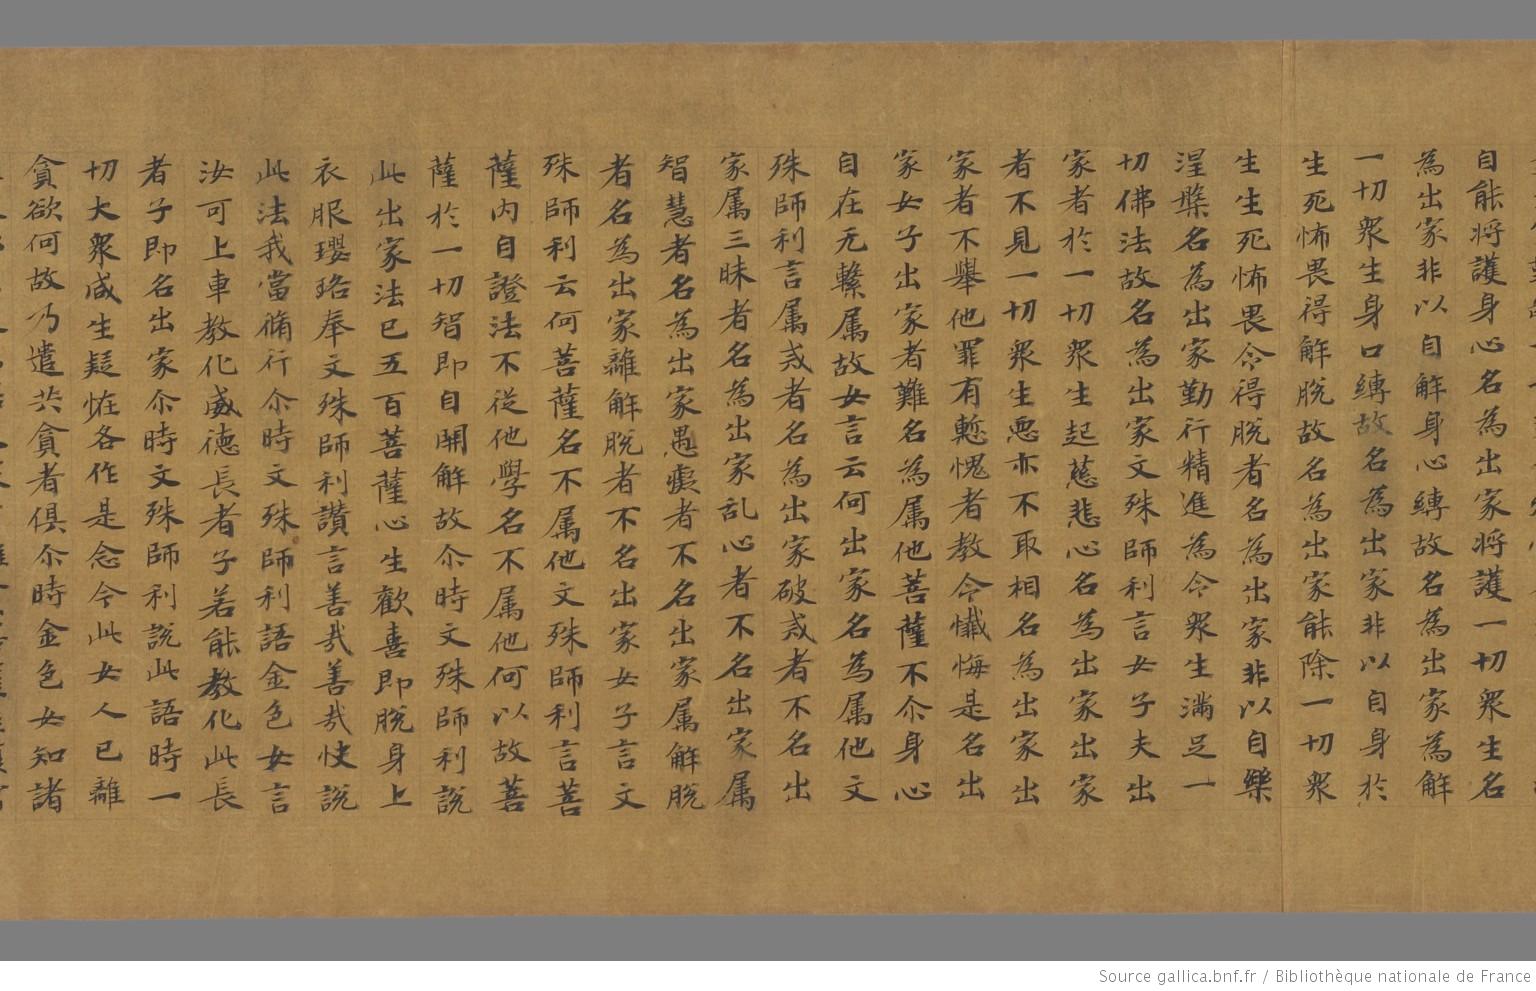 自能將護身心名為出家將護一切眾生名
為出家非以自解身心縛故名為出家為解
一切眾生身口縛故名為出家非以自身於
生死怖畏得解脫故名為出家能除一切眾
生生死怖畏令得脫者名為出家非以自樂
涅槃名為出家勤行精進為令眾生滿足一
切佛法故名為出家文殊師利言女子夫出
家者於一切眾生起慈悲心名為出家出家
者不見一切眾生惡亦不取相名為出家出
家者不舉他罪有慙愧者教令懺悔是名出
家女子出家者難名為属他菩薩不尒身心
自在无繫属故女言云何出家名為属他文
殊師利言属戒者名為出家破戒者不名出
家属三昧者名為出家乱心者不名出家属
智慧者名為出家愚癡者不名出家属解脫
者名為出家離解脫者不名出家女子言文
殊師利云何菩薩名不属他文殊師利言菩
薩內自證法不從他學名不属他何以故菩
薩於一切智即自開解故尒時文殊師利說
此出家法已五百菩薩心生歡喜即脫身上
衣服瓔珞奉文殊師利讚言善哉善哉快說
此法我當脩行尒時文殊師利語金色女言
汝可上車教化威德長者子若能教化此長
者子即名出家尒時文殊師利說此語時一
切大眾咸生疑恠各作是念今此女人已離
貪欲何故乃遣共貪者俱尒時金色女知諸